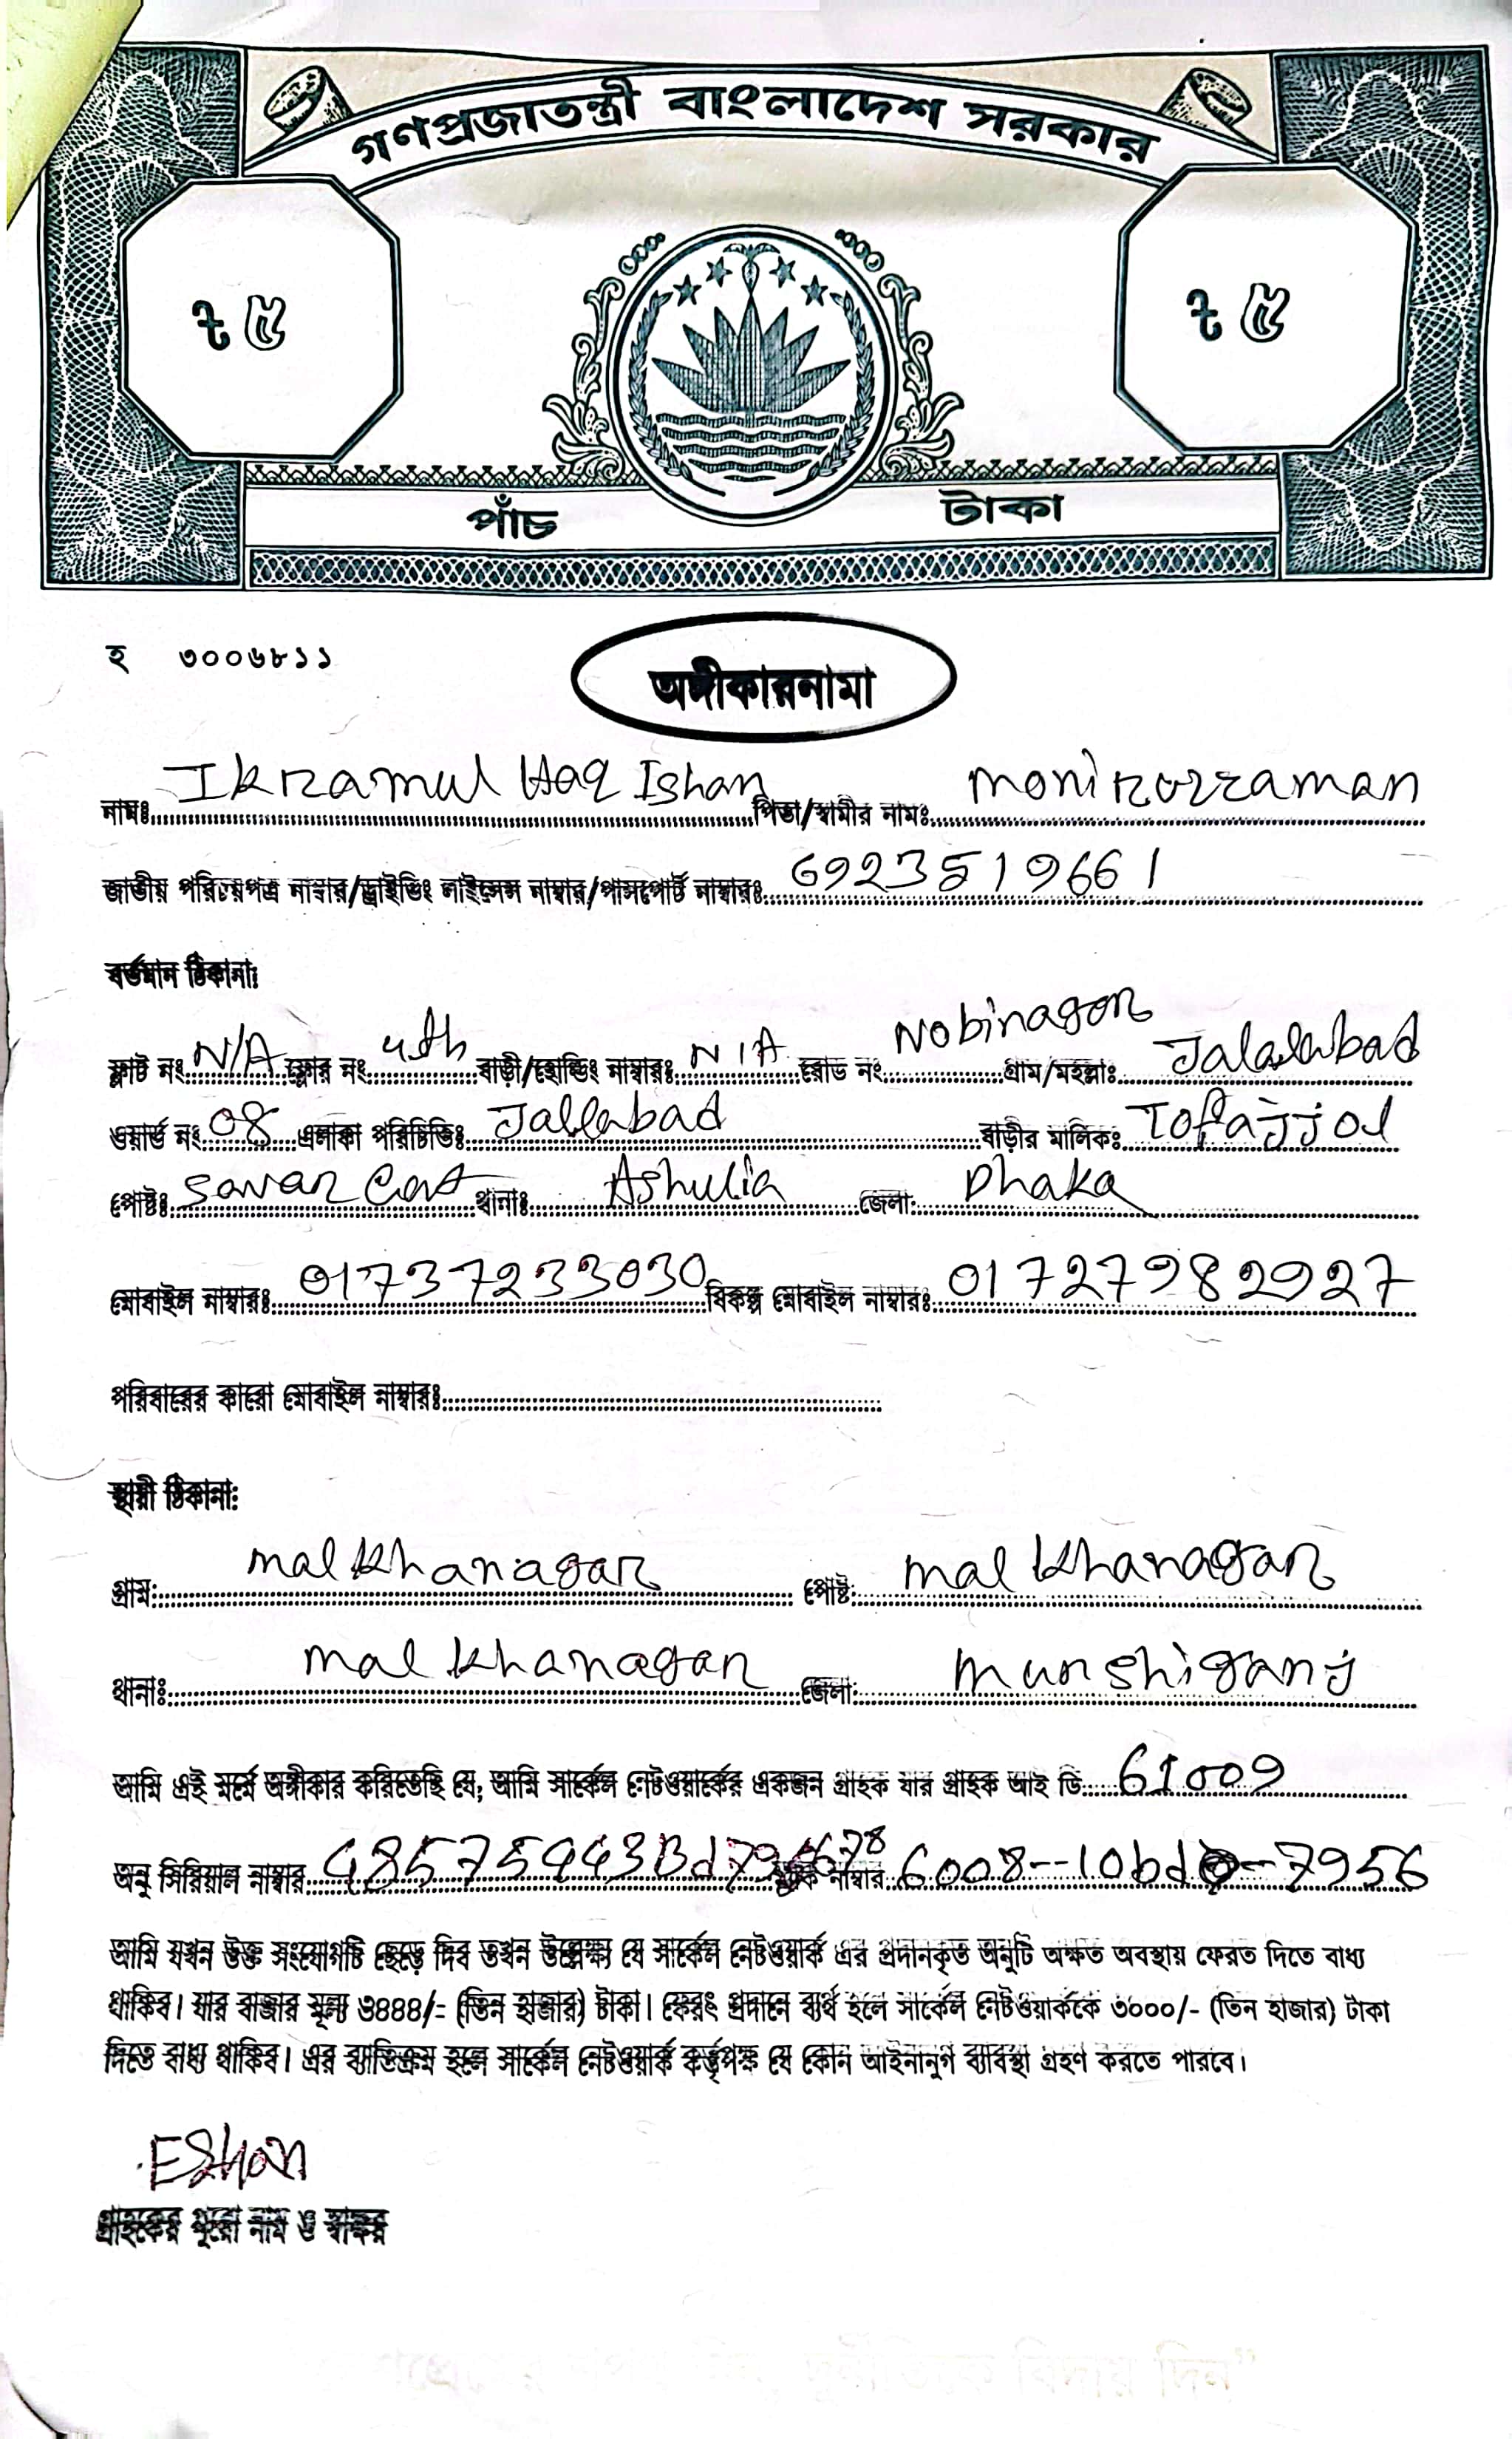 গণপ্রজাতন্ত্রী বাংলাদেশ সরকার
৳ ৫ ৳ ৫
পাঁচ টাকা
হ ৩০০৬৮১১
অঙ্গীকারনামা
নামঃ Ikramul Haq Ishan পিতা/স্বামীর নামঃ Monirozzaman
জাতীয় পরিচয়পত্র নাম্বার/ড্রাইভিং লাইসেন্স নাম্বার/পাসপোর্ট নাম্বারঃ 6923519661
বর্তমান ঠিকানা:
ফ্লাট নং N/A ফ্লোর নং 4th বাড়ী/হোল্ডিং নাম্বারঃ N/A রোড নং Nobinagor গ্রাম/মহল্লাঃ Jalalabad
ওয়ার্ড নং 08 এলাকা পরিচিতিঃ বাড়ীর মালিকঃ Tofajjol
পোষ্টঃ Savar Cant থানাঃ Ashulia জেলা: Dhaka
মোবাইল নাম্বারঃ 01737233030 বিকল্প মোবাইল নাম্বারঃ 01727982927
পরিবারের কারো মোবাইল নাম্বারঃ
স্থায়ী ঠিকানা:
গ্রাম: malkhanagar পোষ্ট: malkhanagar
থানাঃ malkhanagar জেলা: munshiganj
আমি এই মর্মে অঙ্গীকার করিতেছি যে, আমি সার্কেল নেটওয়ার্কের একজন গ্রাহক যার গ্রাহক আই ডি 61009
অনু সিরিয়াল নাম্বার ম্যাক নাম্বার
আমি যখন উক্ত সংযোগটি ছেড়ে দিব তখন উল্লেক্ষ্য যে সার্কেল নেটওয়ার্ক এর প্রদানকৃত অনুটি অক্ষত অবস্থায় ফেরত দিতে বাধ্য
থাকিব। যার বাজার মূল্য (তিন হাজার) টাকা। ফেরৎ প্রদানে ব্যর্থ হলে সার্কেল নেটওয়ার্ককে ৩০০০/- (তিন হাজার) টাকা
দিতে বাধ্য থাকিব। এর ব্যাতিক্রম হলে সার্কেল নেটওয়ার্ক কর্তৃপক্ষ যে কোন আইনানুগ ব্যাবস্থা গ্রহণ করতে পারবে।
EShan
গ্রাহকের পুরো নাম ও স্বাক্ষর
বিদায় দিন”